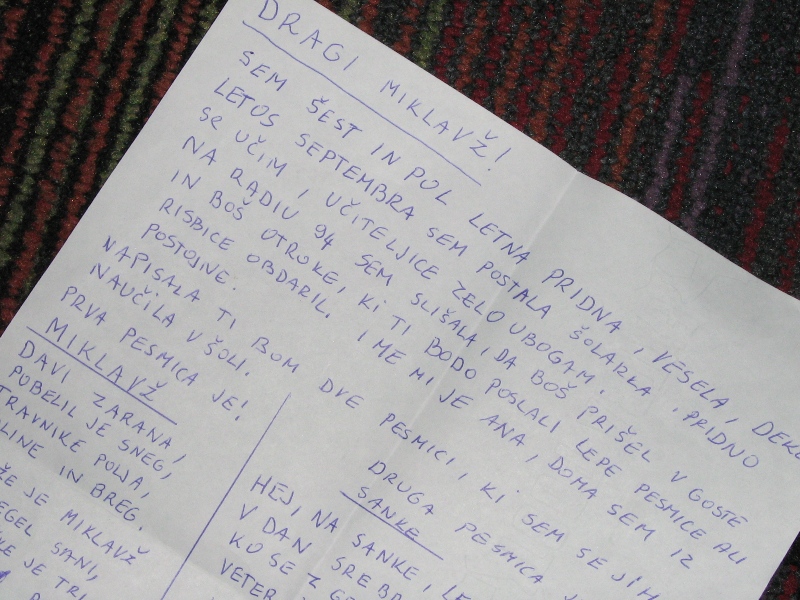 DRAGI MIKLAVŽ!
SEM ŠEST IN POL LETNA PRIDNA, VESELA, DEKL
LETOS SEPTEMBRA SEM POSTALA ŠOLARKA. PRIDNO
SE UČIM, UČITELJICE ZELO UBOGAM.
NA RADIU 94 SEM SLIŠALA, DA BOŠ PRIŠEL V GOSTE
IN BOŠ OTROKE, KI TI BODO POSLALI LEPE PESMICE ALI
RISBICE OBDARIL. IME MI JE ANA, DOMA SEM IZ
POSTOJNE.
NAPISALA TI BOM DVE PESMICI, KI SEM SE JIH
NAUČILA V ŠOLI.
PRVA PESMICA JE:
MIKLAVŽ
DAVI ZARANA,
POBELIL JE SNEG,
TRAVNIKE POLJA,
OLINE IN BREG.
ŽE JE MIKLAVŽ
EGEL SANI,
JE TRI
DRUGA PESMICA J
SANKE
HEJ, NA SANKE, LE
V DAN SREBR
KO SE Z
VETER